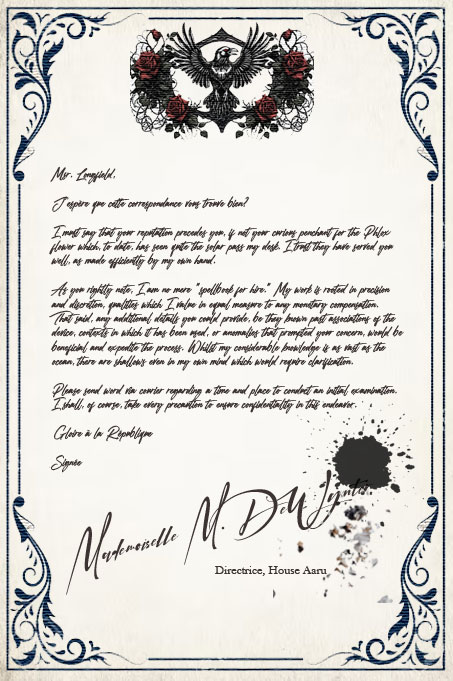 Msr. Longfield,
J'espère que cette correspondance vous trouve bien?
I must say that your reputation precedes you, if not your curious penchant for the Phlex
flower which, to date, has seen quite the solar pass my desk. I trust they have served you
well, as made efficiently by my own hand.
As you rightly note, I am no mere "spellbook for hire." My work is rooted in precision
and discretion, qualities which I value in equal measure to any monetary compensation.
That said, any additional details you could provide, be they known past associations of the
device, contexts in which it has been used, or anomalies that prompted your concern, would be
beneficial and expedite the process. Whilst my considerable knowledge is as vast as the
ocean, there are shallows even in my own mind which would require clarification.
Please send word via courier regarding a time and place to conduct an initial examination.
I shall, of course, take every precaution to ensure confidentiality in this endeavor.
Gloire à la République
Signée
Mademoiselle M. DeWynter
Directrice, House Aaru